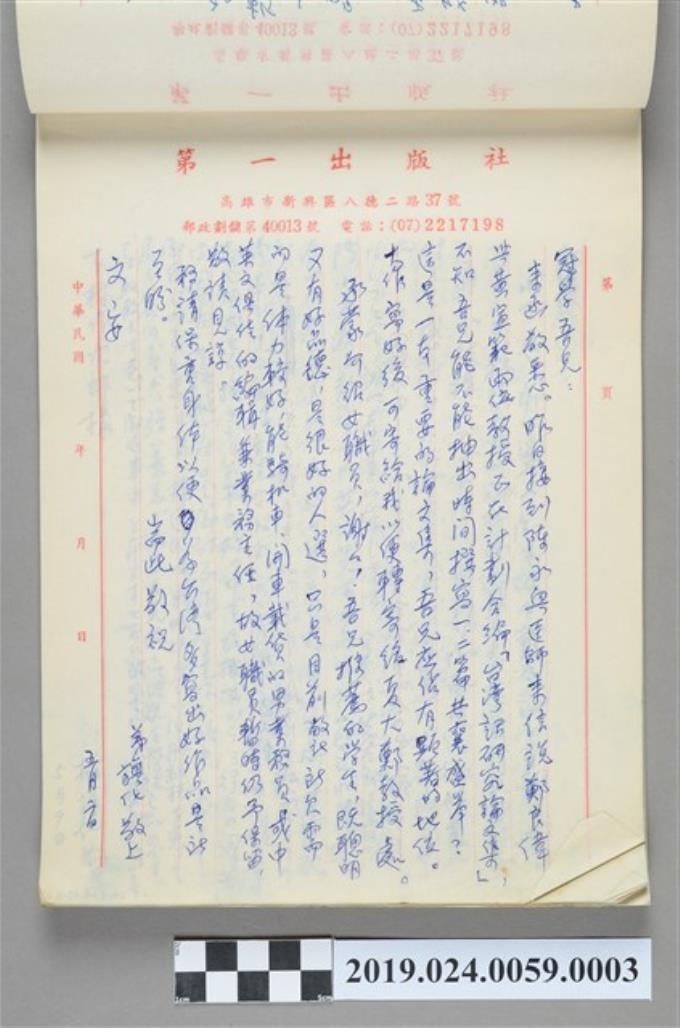 第一出版社
高雄市新興區八德二路37號
郵政劃儲第40013號 電話:(07)2217198
第 頁
冠學吾兄：
來函敬悉。昨日接到陳永興醫師來信說鄭良偉
與黃宣範兩位教授正在計劃合編「台灣語研究論文集」，
不知吾兄能不能抽出時間撰寫一、二篇共襄盛舉？
這是一本重要的論文集，吾兄應佔有顯著的地位。
大作寫好後可寄給我以便轉寄給夏大鄭教授處。
承蒙介紹女職員，謝謝，吾兄推薦的學生，既聰明
又有好品德，是很好的人選，只是目前敝社欠需
的是体力較好，能騎机車、開車載貨的男業務員或中
英文俱佳的編輯兼業務主任，故女職員暫時仍予保留，
敬請見諒。
務請保重身体以便為台灣多寫出好作品是所
至盼。
耑此敬祝
文安
弟 旗化敬上
五月二日
中華民國 年 月 日
2019.024.0059.0003